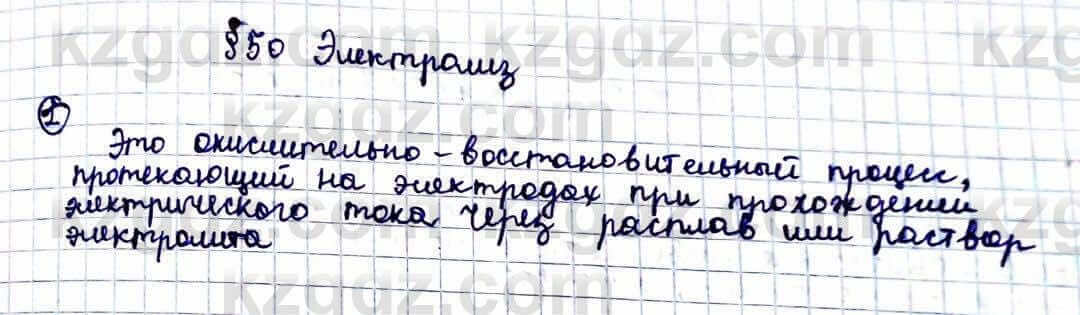 kzgdz.com kzgdz.com kzgdz.com
§50 Электролиз
kzgdz.com
1
Это окислительно-восстановительный процесс,
протекающий на электродах при прохождении
электрического тока через расплав или раствор
электролита
kzgdz.com